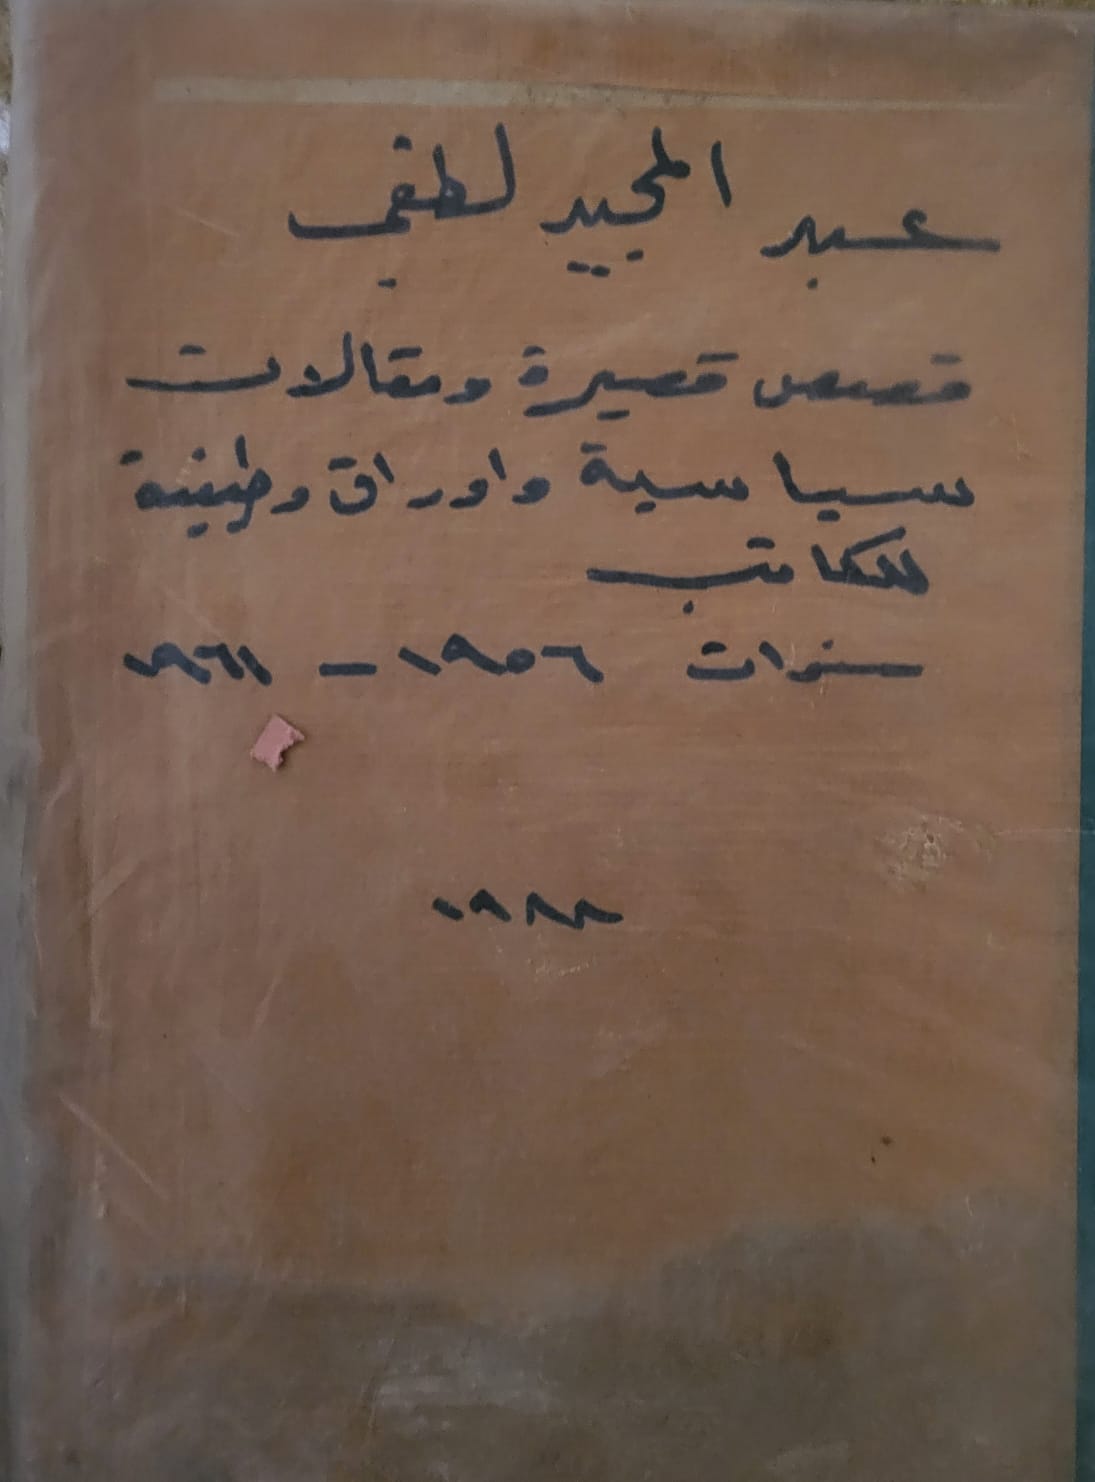 عبد المجيد لطفي
قصص قصيرة ومقالات
سياسية واوراق وظيفية
للكاتب
سنوات ١٩٥٦ - ١٩٦١
١٩٨٨